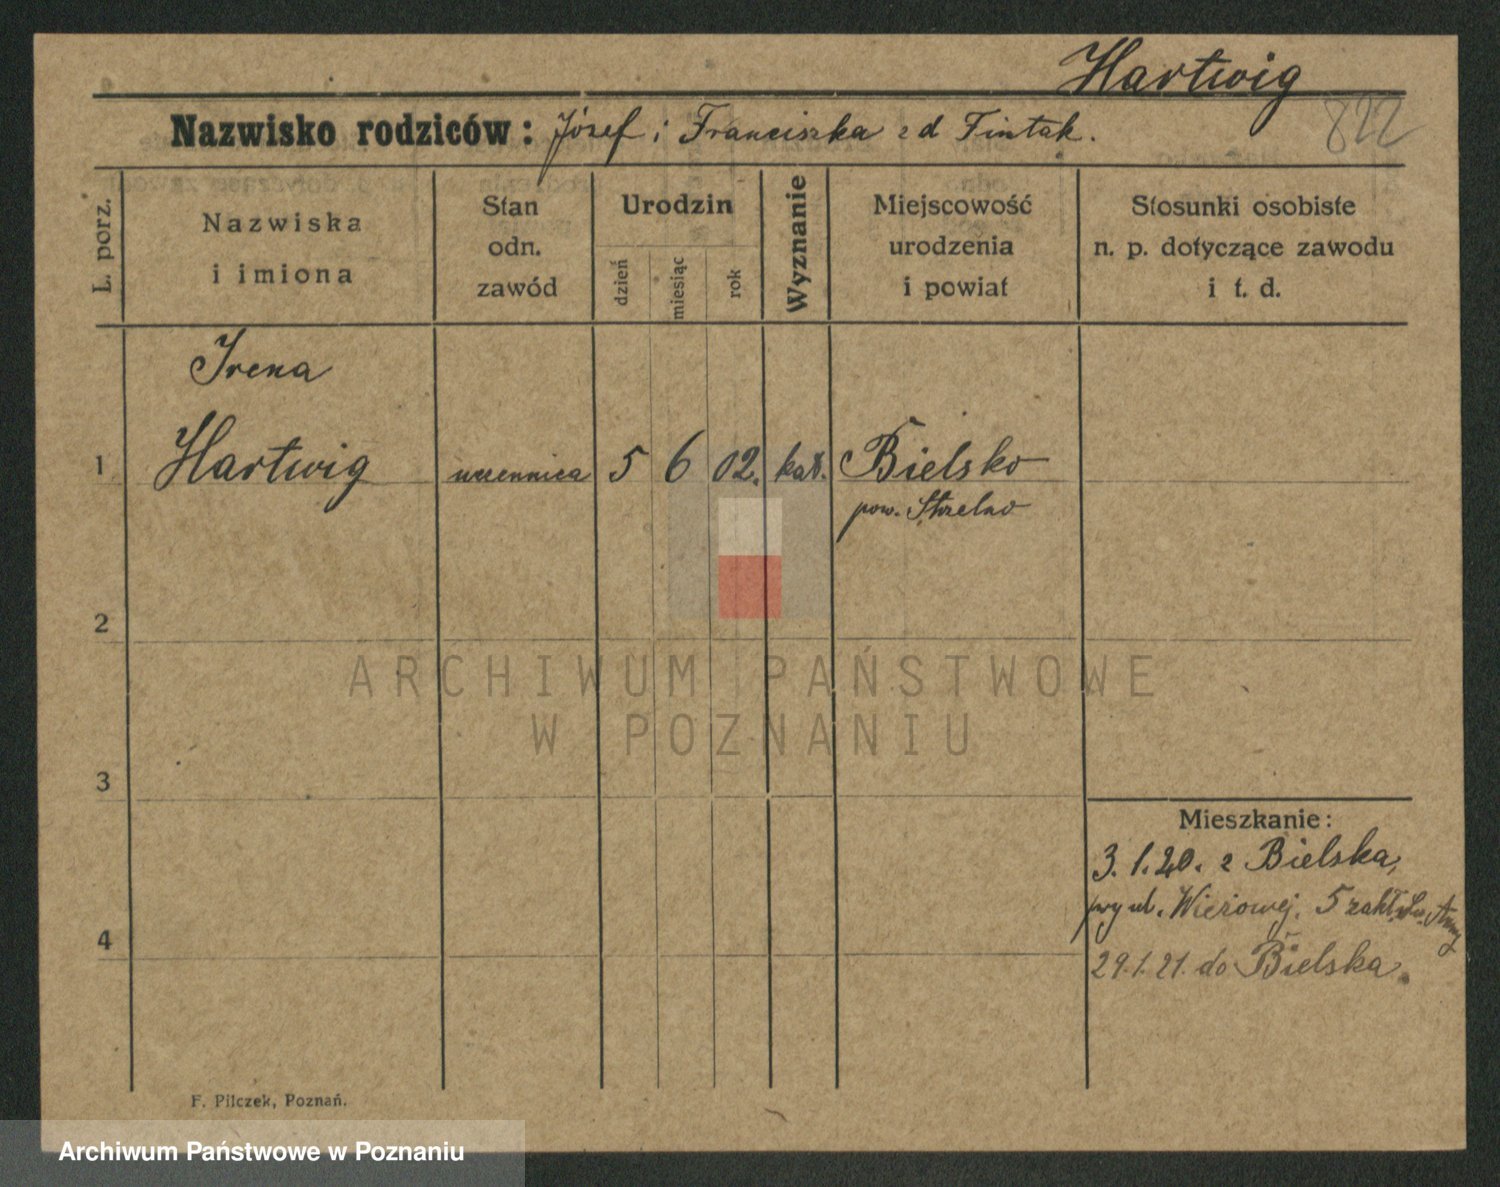 Hartwig
822
Nazwisko rodziców: Józef i Franciszka z d Fintak.
L. porz.
Nazwiska
i imiona
Stan
odn.
zawód
Urodzin
dzień
miesiąc
rok
Wyznanie
Miejscowość
urodzenia
i powiat
Stosunki osobiste
n. p. dotyczące zawodu
i t. d.
Irena
1 Hartwig uczennica 5 6 02. kat. Bielsko
pow. Strzelno
2
ARCHIWUM PAŃSTWOWE
W POZNANIU
3
Mieszkanie:
3.1.20. z Bielska,
przy ul. Wieżowej. 5 zakł. Św. Anny
4
29.1.21. do Bielska.
F. Pilczek, Poznań.
Archiwum Państwowe w Poznaniu